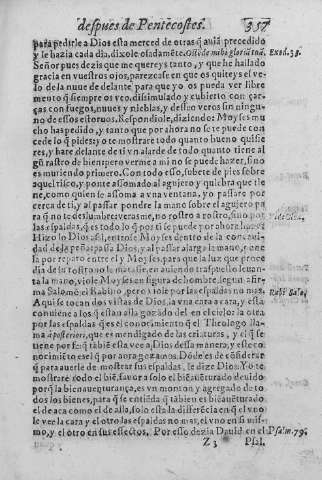 despues de Pentecostes. 357
para pedirle a Dios esta merced de otras q̃ auiã precedido
y le hazia cada dia, dixole osadamẽte. Ostẽde mihi gloriã tuã. Exod. 33.
Señor pues dezis que me quereys tanto, y que he hallado
gracia en vuestros ojos, parezcase en que os quiteys el ve-
lo de la nuue de delante para que yo os pueda ver libre
mente q̃ siempre os veo, dissimulado y cubierto con çar-
ças con fuegos, nuues y nieblas, y desseo veros sin ningu-
no de essos estoruos. Respondiole, diziendo: Moyses mu
cho has pedido, y tanto que por ahora no se te puede con
ceder lo q̃ pides: yo te mostrare todo quanto bueno quisie
res, y hare delante de ti vn alarde de todo quanto tiene al
gũ rastro de bien: pero verme a mi no se puede hazer, sino
es muriendo primero. Con todo esso, subete de pies sobre
aquel risco, y ponte assomado al agujero y quiebra que tie
ne, como quien se assoma a vna ventana, yo passare por
cerca de ti, y al passar pondre la mano sobre el agujero pa
ra q̃ no te deslumbre: verasme, no rostro a rostro, sino por
las espaldas, q̃ es todo lo q̃ por ti se puede por ahora hazer
Hizolo Dios assi, entrose Moyses dentro de la concaui
dad de la peña: passo Dios, y al passar alargo la mano,
so la por reparo entre el y Moyses, para que la luz que proce
dia de su rostro no le matasse, en auiendo traspuesto leuan-
ta la mano, viole Moyses en figura de hombre, segun afir-
ma Salomõ el Rabino, pero viole por las espaldas no mas. Rabi Salo.
Aqui se tocan dos vistas de Dios, la vna cara a cara, y esta
conuiene a los q̃ estan alla gozado del en el cielo: la otra
por las espaldas q̃ es el conocimiento que el Theologo lla
ma à posteriori, que es mendigado de las criaturas, y el q̃ se
tiene por fe: q̃ tãbiẽ esta vee a Dios dessa manera, y este co-
nocimiẽto es el q̃ por aora gozamos. Dõde es de cõsiderar
q̃ para auerle de mostrar sus espaldas, le dize Dios: Yo te
mostrare todo el biẽ, fauor a solo el biẽauẽturado deuido
porq̃ la bienauẽturança, es vn monton y agregado de to
dos los bienes, para q̃ se entiẽda q̃ tambien es biẽauẽturado
el de aca como el de alla, solo esta la differẽcia en q̃ el vno
le ver la cara y el otro las espaldas no mas, el vno en si mis-
mo, y el otro en sus efectos. Por esso dezia Dauid en el Psalm. 79.
Z 3 Psal.